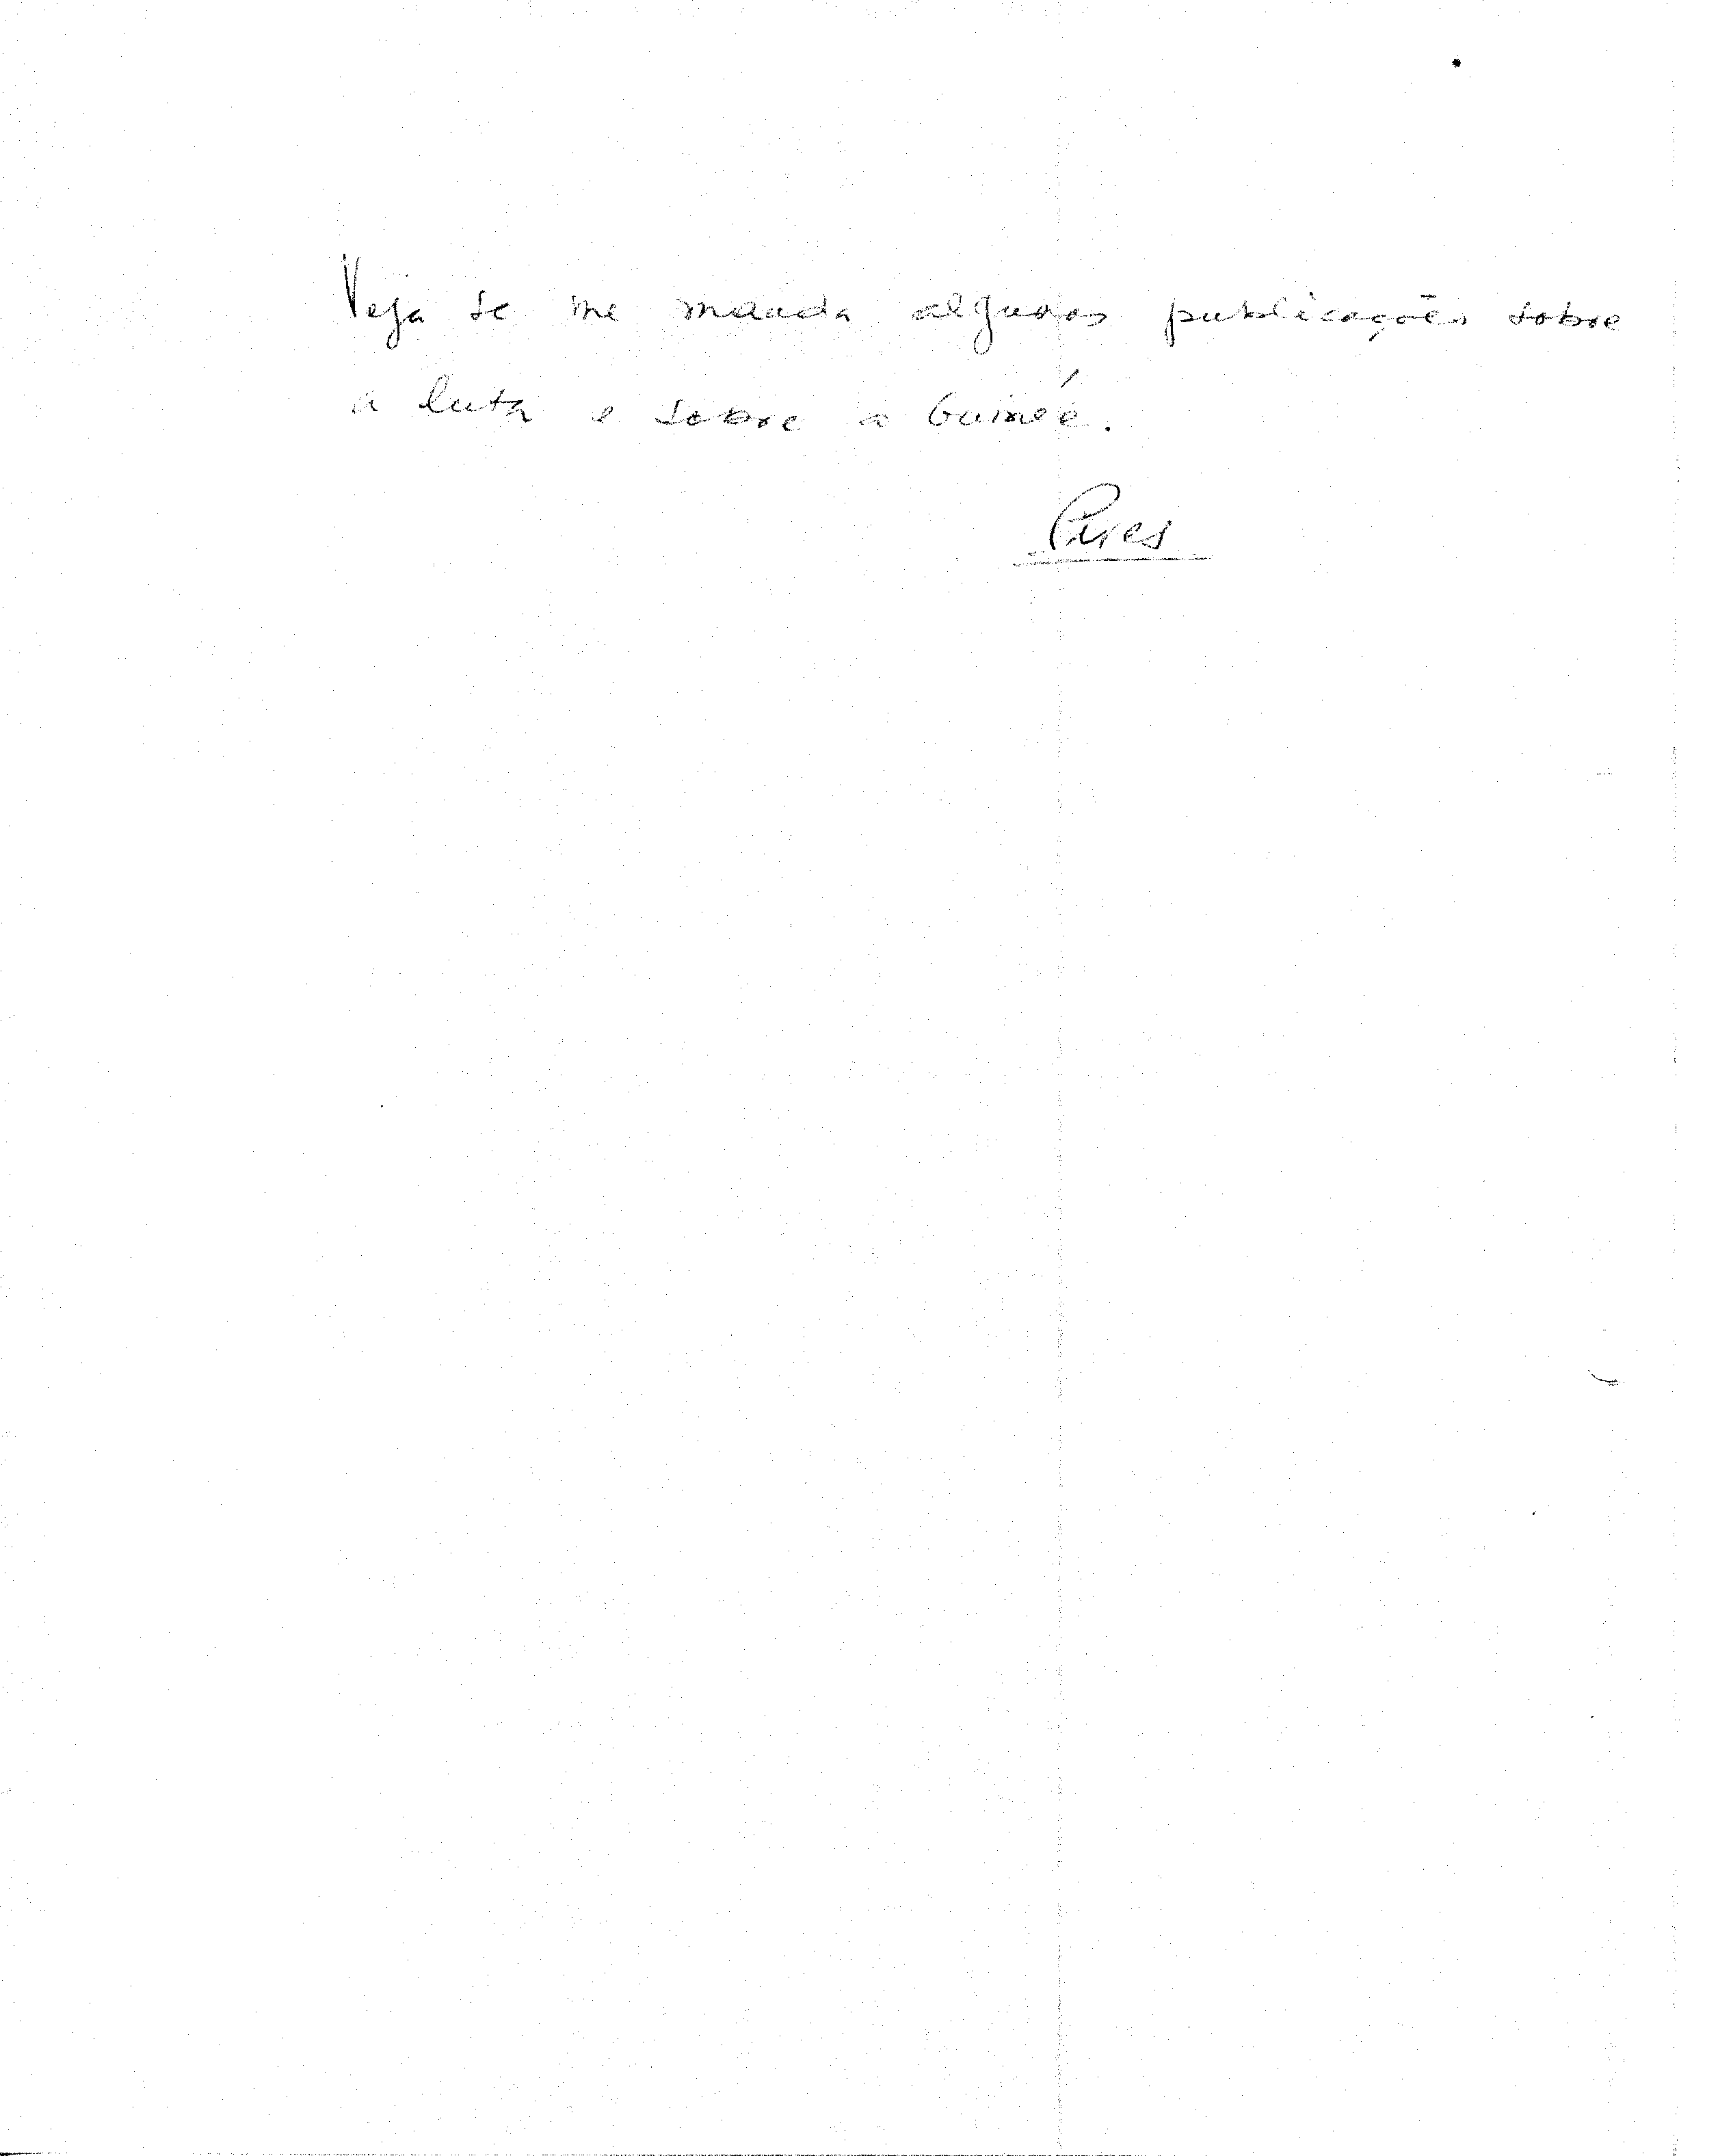 Veja se me manda algumas publicações sobre
a luta e sobre a Guiné.
Pires